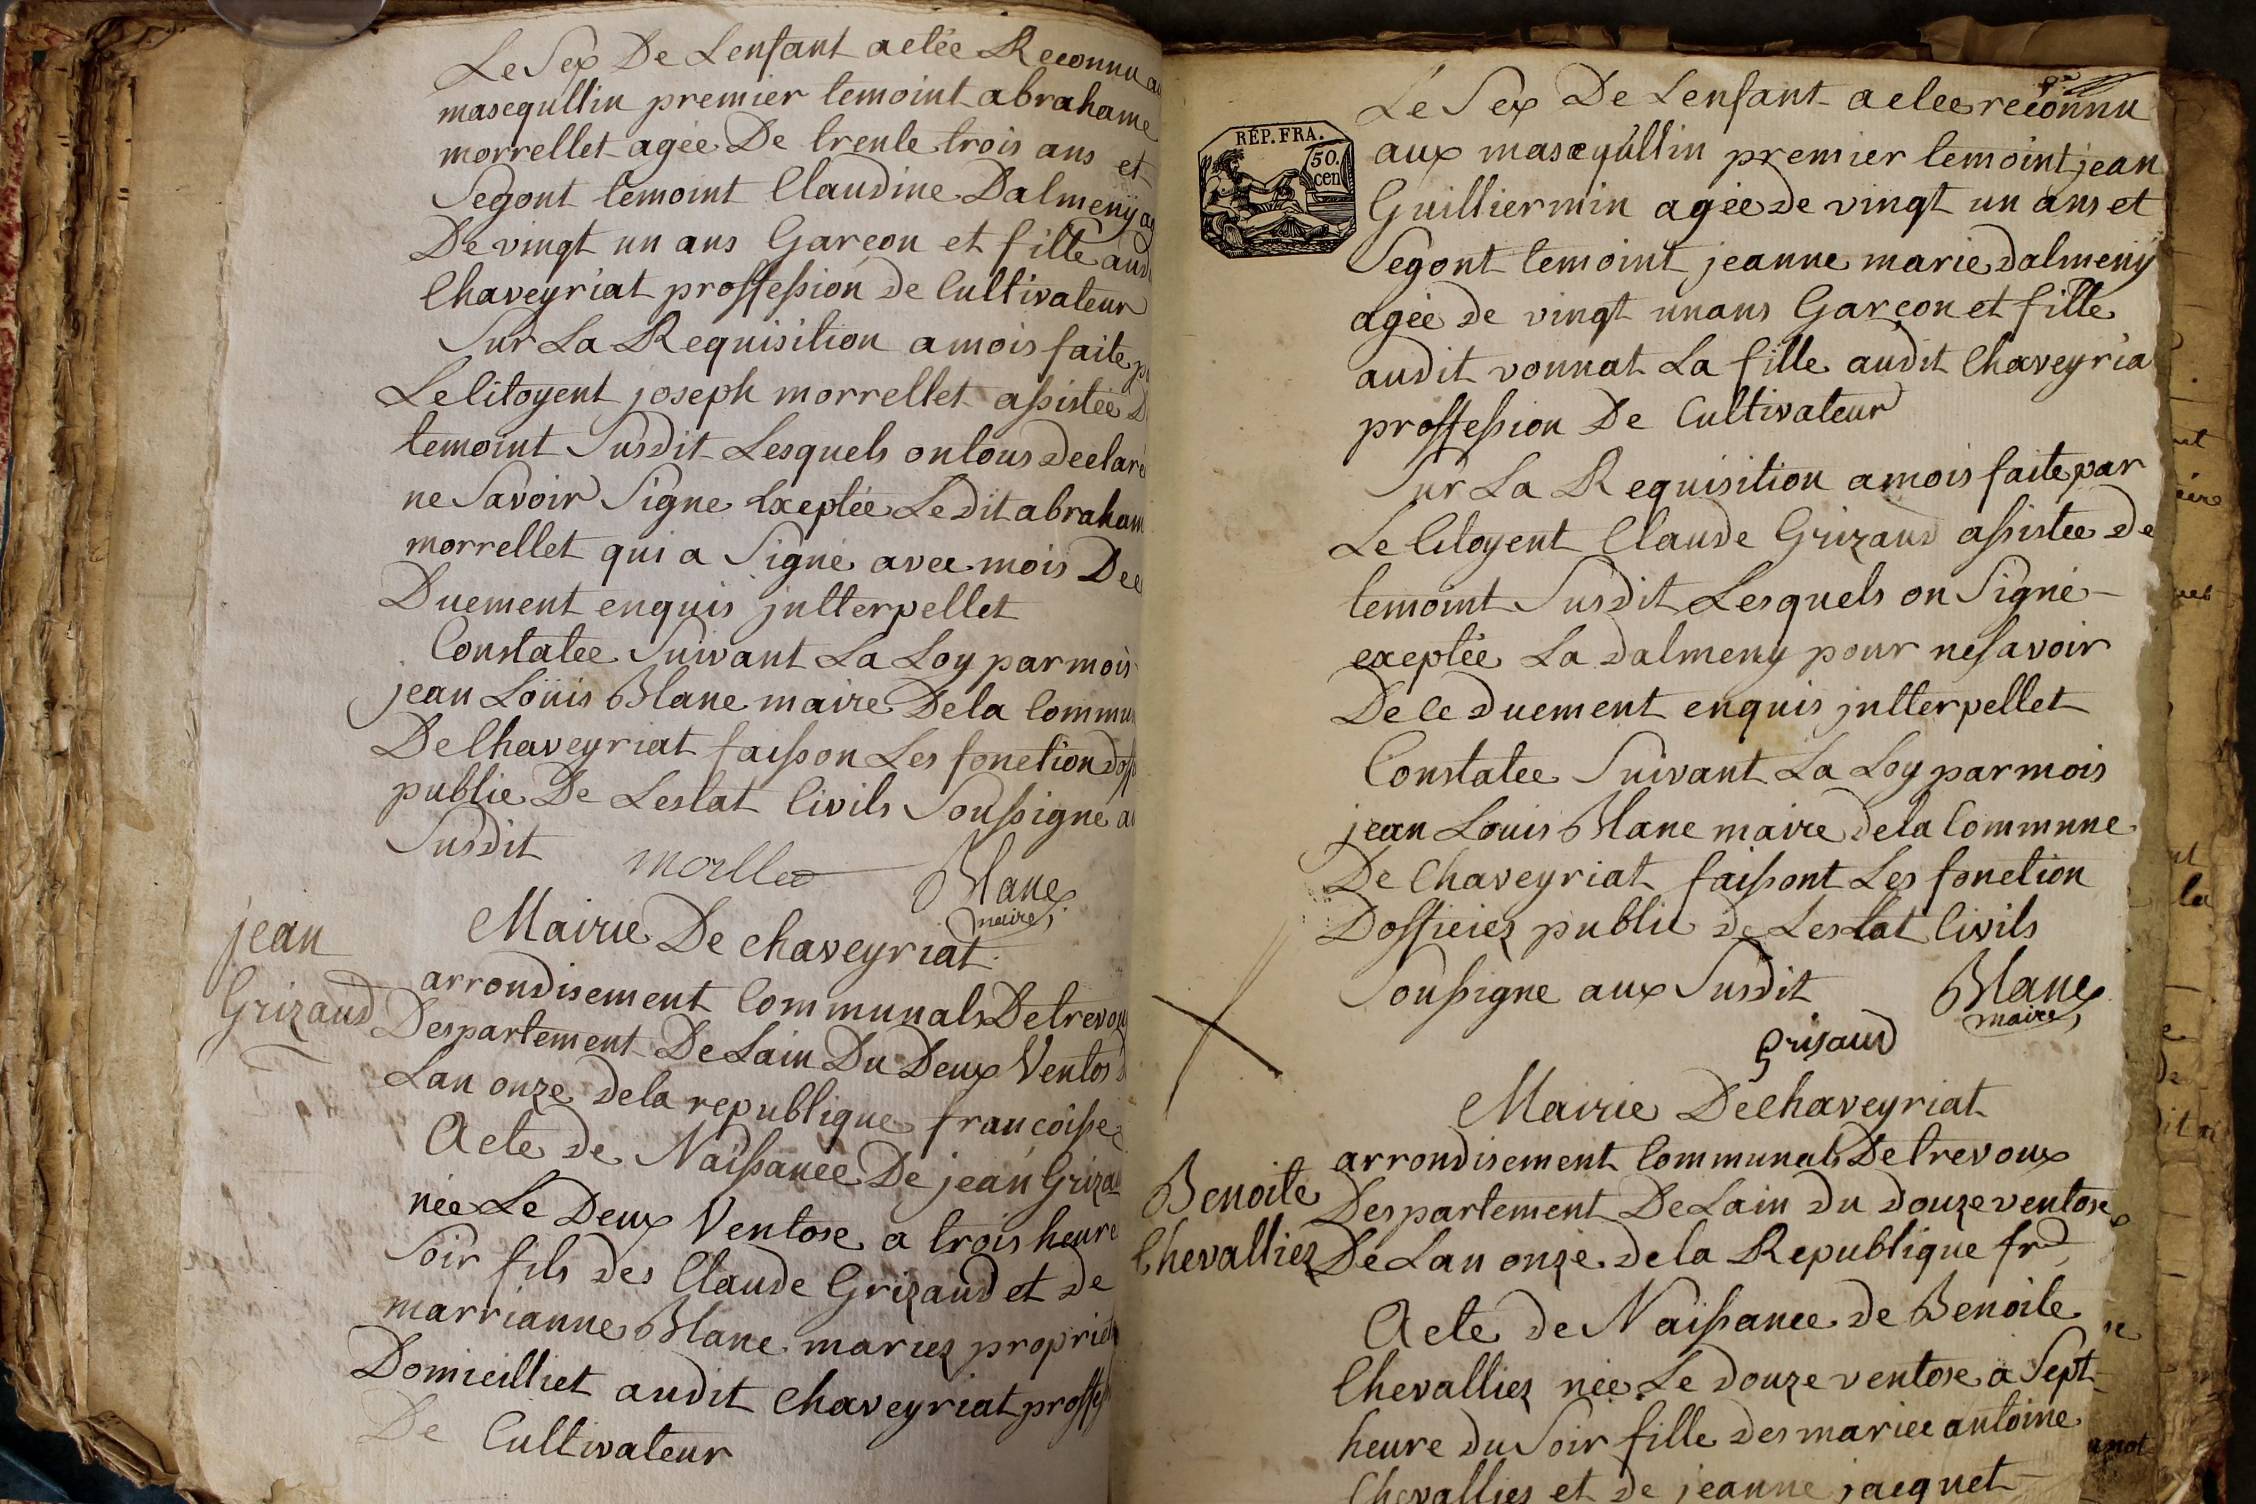 Le Sex De Lenfant a etée Reconnu au
masecqullin premier temoint abrahame
morrellet agée De trente trois ans et
Segont temoint Claudine Dalmenÿ
De vingt un ans Garçon et fille aud
Chaveyriat proffession De Cultivateur
Sur La Requisition a mois faite
Le Citoyent joseph morrellet assistée
temoint Susdit Lesquels on tous declaré
ne Savoir Signe Exeptée Le dit abraham
morrellet qui a Signé avec mois De ce
Duement enquis jntterpellet
Constatée Suivant La Loy par mois
jean Loüis Blanc maire De la Commu
De Chaveyriat faisson Les fonction doff
public De Lestat Civils Soussigné au
Susdit
morllet
Blanc
maire
jean
Grizaud
Mairie De chaveyriat
arrondisement Communals De trevou
Despartement De Lain Du Deux Ventos
Lan onze de la republique francoisse
Acte de Naissance De jean Griza
née Le Deux Ventose a trois heure
Soir fils des Claude Grizaud et de
marrianne Blanc mariez propriet
Domicilliet audit Chaveyriat proffess
De Cultivateur
RÉP. FRA.
50.
cen
Le Sex De Lenfant a etée reconnu
aux masecqullin premier temoint jean
Guilliermin agée de vingt un ans et
Segont temoint jeanne marie Dalmenÿ
agée de vingt un ans Garçon et fille
audit vonnat La fille audit Chaveyria
proffession De Cultivateur
Sur La Requisition a mois faite par
Le Citoyent Claude Grizaud assistée de
temoint Susdit Lesquels on Signé
exeptée La Dalmeny pour ne savoir
De Ce Duement enquis jntterpellet
Constatée Suivant La Loy par mois
jean Louis Blanc maire de la Commune
De Chaveyriat faissont Les fonction
Dofficiez public de Lestat Civils
Soussigne aux Susdit
Blanc
maire
Grisaud
Mairie De Chaveyriat
Benoite
Chevalliez
arrondisement Communals De trevoux
Despartement De Lain du douze ventose
De Lan onze de la Republique frd
Acte de Naissance de Benoite
Chevalliez née Le douze ventose a Sept
heure du Soir fille des mariee antoine
Chevalliez et de jeanne jacquet